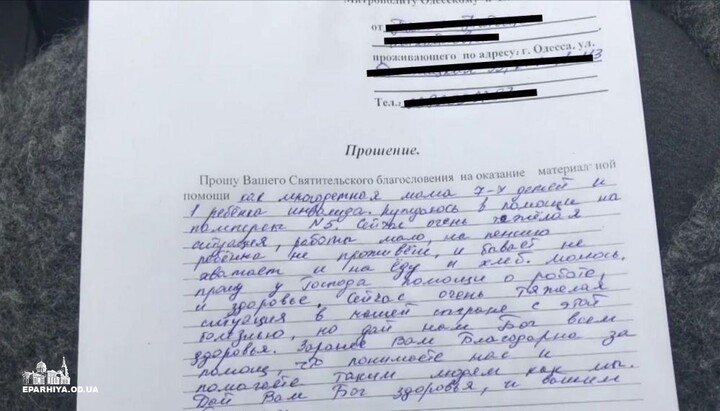 Митрополиту Одесскому и
от
проживающего по адресу: г. Одесса, ул.
Тел.:
Прошение.
Прошу Вашего Святительского благословения на оказание материальной
помощи как многодетная мама 7-х детей и
1 ребёнка инвалида. Нуждаюсь в помощи на
памперсы N5. Сейчас очень тяжёлая
ситуация, работы мало, на пенсию
ребёнка не проживём, и бывает не
хватает и на еду и хлеб. Молюсь,
прошу у Господа помощи о работе,
и здоровье. Сейчас очень тяжёлая
ситуация в нашей стране с этой
болезнью, но дай нам Бог всем
здоровья. Заранее Вам Благодарна за
помощь, что понимаете нас и
помогаете таким людям как мы.
Дай Вам Бог здоровья, и вашим
EPARHIYA.OD.UA